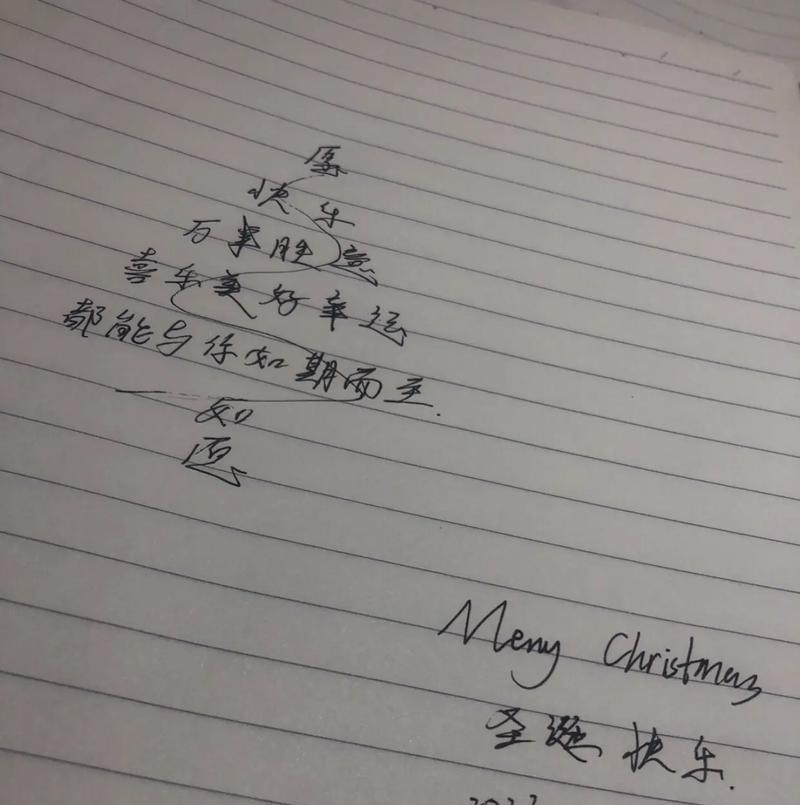 愿
快乐
万事胜意
喜乐美好幸运
都能与你如期而至.
如
愿
Merry Christmas
圣诞快乐.